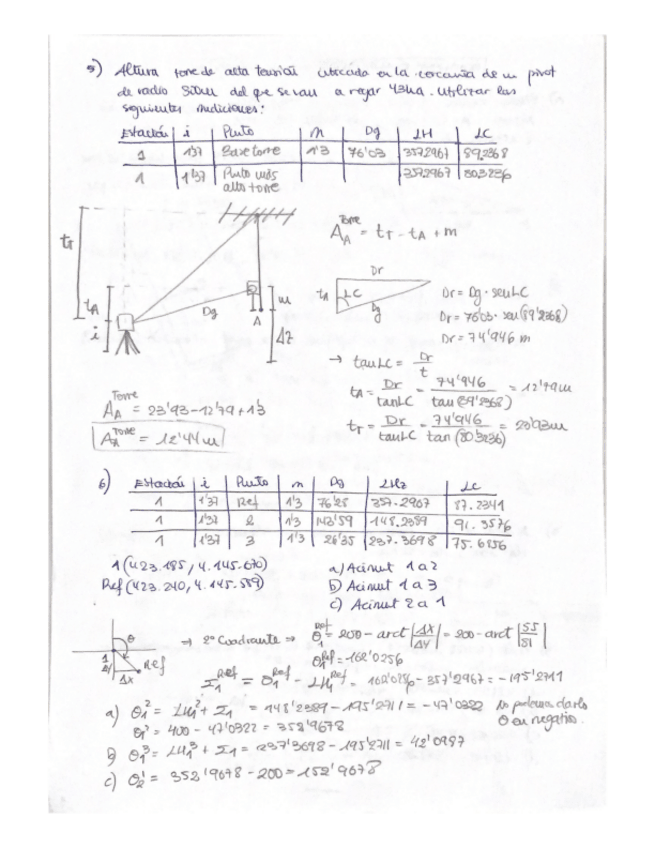 5) Altura torre de alta tensión ubicada en la cercanía de un pivot
de radio 50m del que se van a regar 43Ha. Utilizar las
siguientes mediciones:
Estación | i | Punto | m | Dg | LH | LC
1 | 1'37 | Base torre | 1'3 | 76'03 | 357.2967 | 89.2368
1 | 1'37 | Punto más alto torre | | | 357.2967 | 80.3236
tT
tA
i
Dg
m
A
Δz
A_A^Torre = tT - tA + m
Dr
tA LC Dg
Dr = Dg · sen LC
Dr = 76'03 · sen (89'2368)
Dr = 74'946 m
→ tan LC = Dr / t
tA = Dr / tan LC = 74'946 / tan (89'2368) = 12'79m
tT = Dr / tan LC = 74'946 / tan (80'3236) = 23'93m
A_A^Torre = 23'93 - 12'79 + 1'3
A_A^Torre = 12'44 m
6) Estación | i | Punto | m | Dg | LHz | LC
1 | 1'37 | Ref | 1'3 | 76'28 | 357.2967 | 87.2341
1 | 1'37 | 2 | 1'3 | 143'59 | 148.2389 | 91.3576
1 | 1'37 | 3 | 1'3 | 26'35 | 237.3698 | 75.6256
1 (423.185, 4.145.670)
Ref (423.240, 4.145.589)
a) Acimut 1 a 2
b) Acimut 1 a 3
c) Acimut 2 a 1
θ
1
Δy
Δx
Ref
→ 2º Cuadrante ⇒ θ_1^Ref = 200 - arct |Δx/Δy| = 200 - arct |55/81|
θ_1^Ref = 162'0256
Σ_1^Ref = θ_1^Ref - LH_1^Ref = 162'0256 - 357'2967 = -195'2711
a) θ_1^2 = LH_1^2 + Σ_1 = 148'2389 - 195'2711 = -47'0322 No podemos darlo
θ en negativo.
θ_1^2 = 400 - 47'0322 = 352'9678
b) θ_1^3 = LH_1^3 + Σ_1 = 237'3698 - 195'2711 = 42'0987
c) θ_2^1 = 352'9678 - 200 = 152'9678